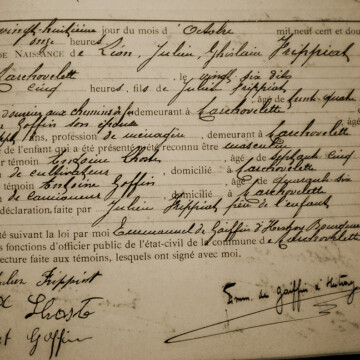 vingt huitième jour du mois d'Octobre mil neuf cent et dou
onze heures
DE NAISSANCE de Lion, Julien, Ghislain Frippiat
Marchovelette, le vingt six dito
cinq heures, fils de Julien Frippiat
, âgé de trente quatre
aux chemins de fer demeurant à Marchovelette
Goffin son épouse, âgée
ans, profession de ménagère, demeurant à Marchovelette
e de l'enfant qui a été présenté être reconnu être masculin
r témoin Antoine Thost, âgé de septante cinq
de cultivateur, domicilié à Marchovelette
témoin Antoine Goffin, âgé de
de camionneur, domicilié à Marchovelette
déclaration faite par Julien Frippiat père de l'enfant
té suivant la loi par moi Emmanuel de Gaiffier d'Hestroy Bourgmestre
s fonctions d'officier public de l'état-civil de la commune de Marchovelette
ecture faite aux témoins, lesquels ont signé avec moi.
Julien Frippiat
Thost
Goffin
Emm. de Gaiffier d'Hestroy